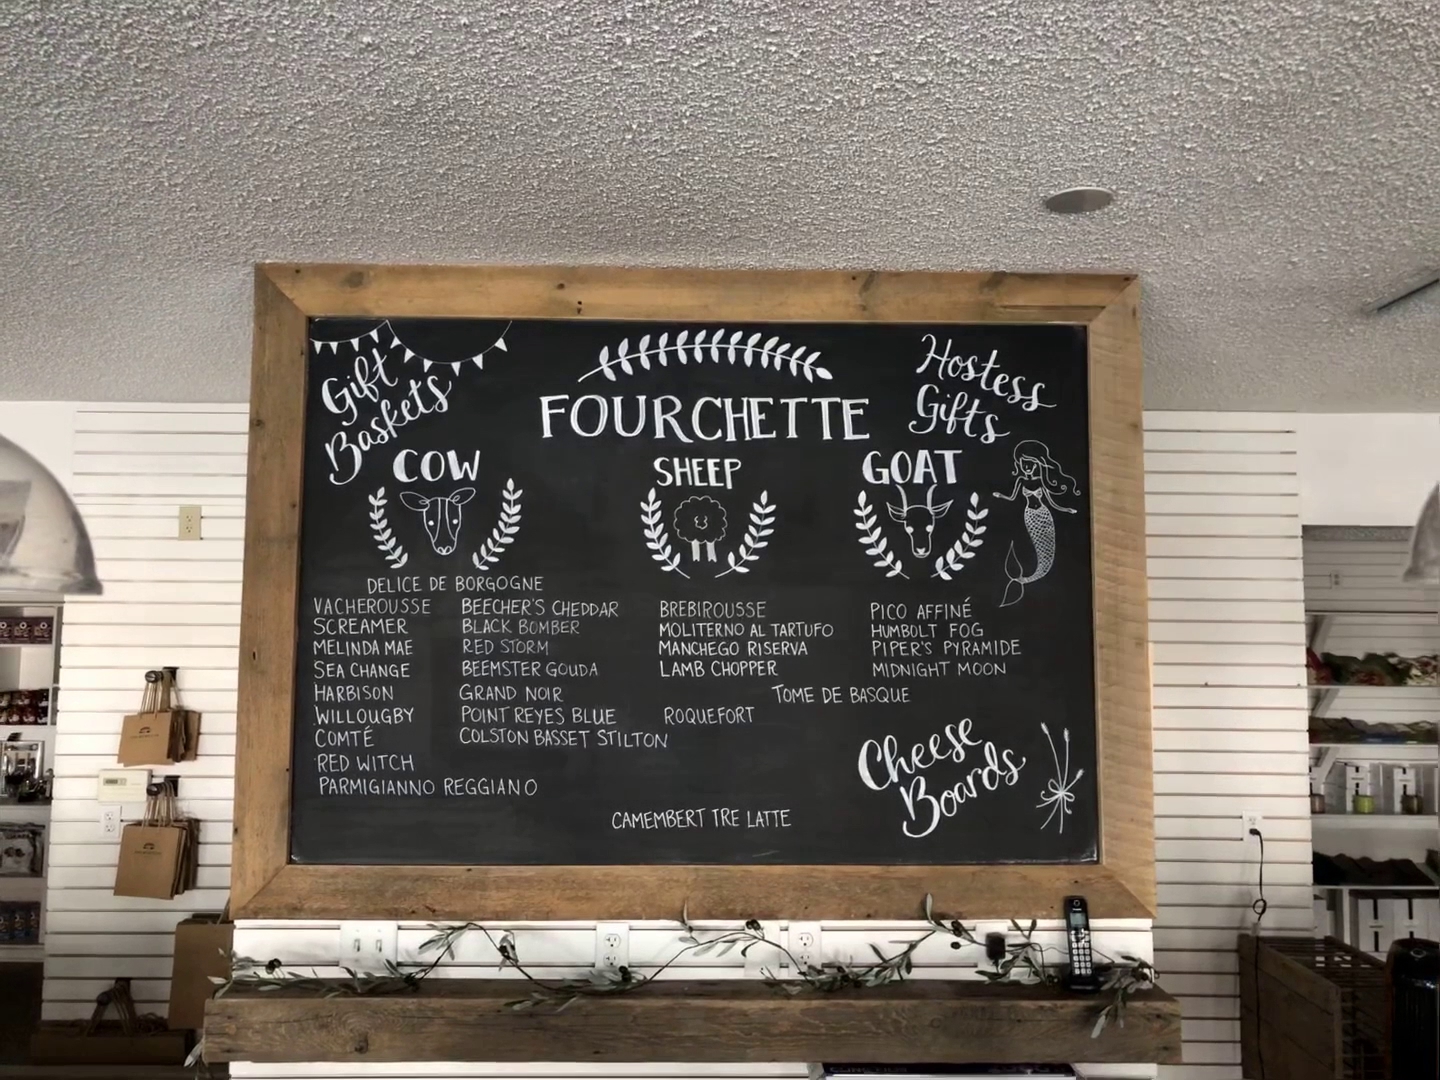 Gift
Baskets
FOURCHETTE
Hostess
Gifts
COW
DELICE DE BORGOGNE
VACHEROUSSE
SCREAMER
MELINDA MAE
SEA CHANGE
HARBISON
WILLOUGBY
COMTÉ
RED WITCH
PARMIGIANNO REGGIANO
BEECHER'S CHEDDAR
BLACK BOMBER
RED STORM
BEEMSTER GOUDA
GRAND NOIR
POINT REYES BLUE
COLSTON BASSET STILTON
SHEEP
BREBIROUSSE
MOLITERNO AL TARTUFO
MANCHEGO RISERVA
LAMB CHOPPER
TOME DE BASQUE
ROQUEFORT
GOAT
PICO AFFINÉ
HUMBOLT FOG
PIPER'S PYRAMIDE
MIDNIGHT MOON
Cheese
Boards
CAMEMBERT TRE LATTE